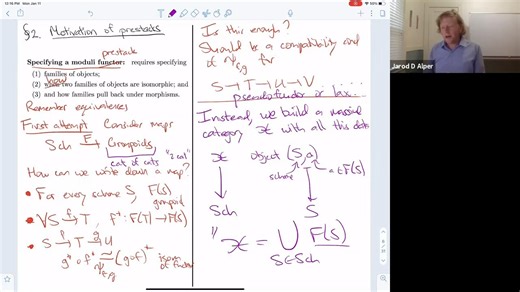 12:16 PM Mon Jan 11
50%
Jarod D Alper
§2. Motivation of prestacks
prestack
Specifying a moduli functor: requires specifying
(1) families of objects;
how
(2) when two families of objects are isomorphic; and
(3) and how families pull back under morphisms.
Remember equivalences
First attempt Consider maps
Sch F→ Groupoids
cat of cats "2 cat"
How can we write down a map?
• For every scheme S, F(S)
groupoid
• ∀S f→ T, f*: F(T) → F(S)
• S f→ T g→ U
g* ∘ f* ≃ (g∘f)* isom
Ψf,g of functors
Is this enough?
Should be a compatibility cond
of Ψf,g for
S → T → U → V ....
pseudofunctor or lax..
Instead, we build a massive
category 𝒳 with all this data
𝒳 object (S, a)
scheme a∈F(S)
Sch S
" 𝒳 = ⋃ F(S)
S∈Sch